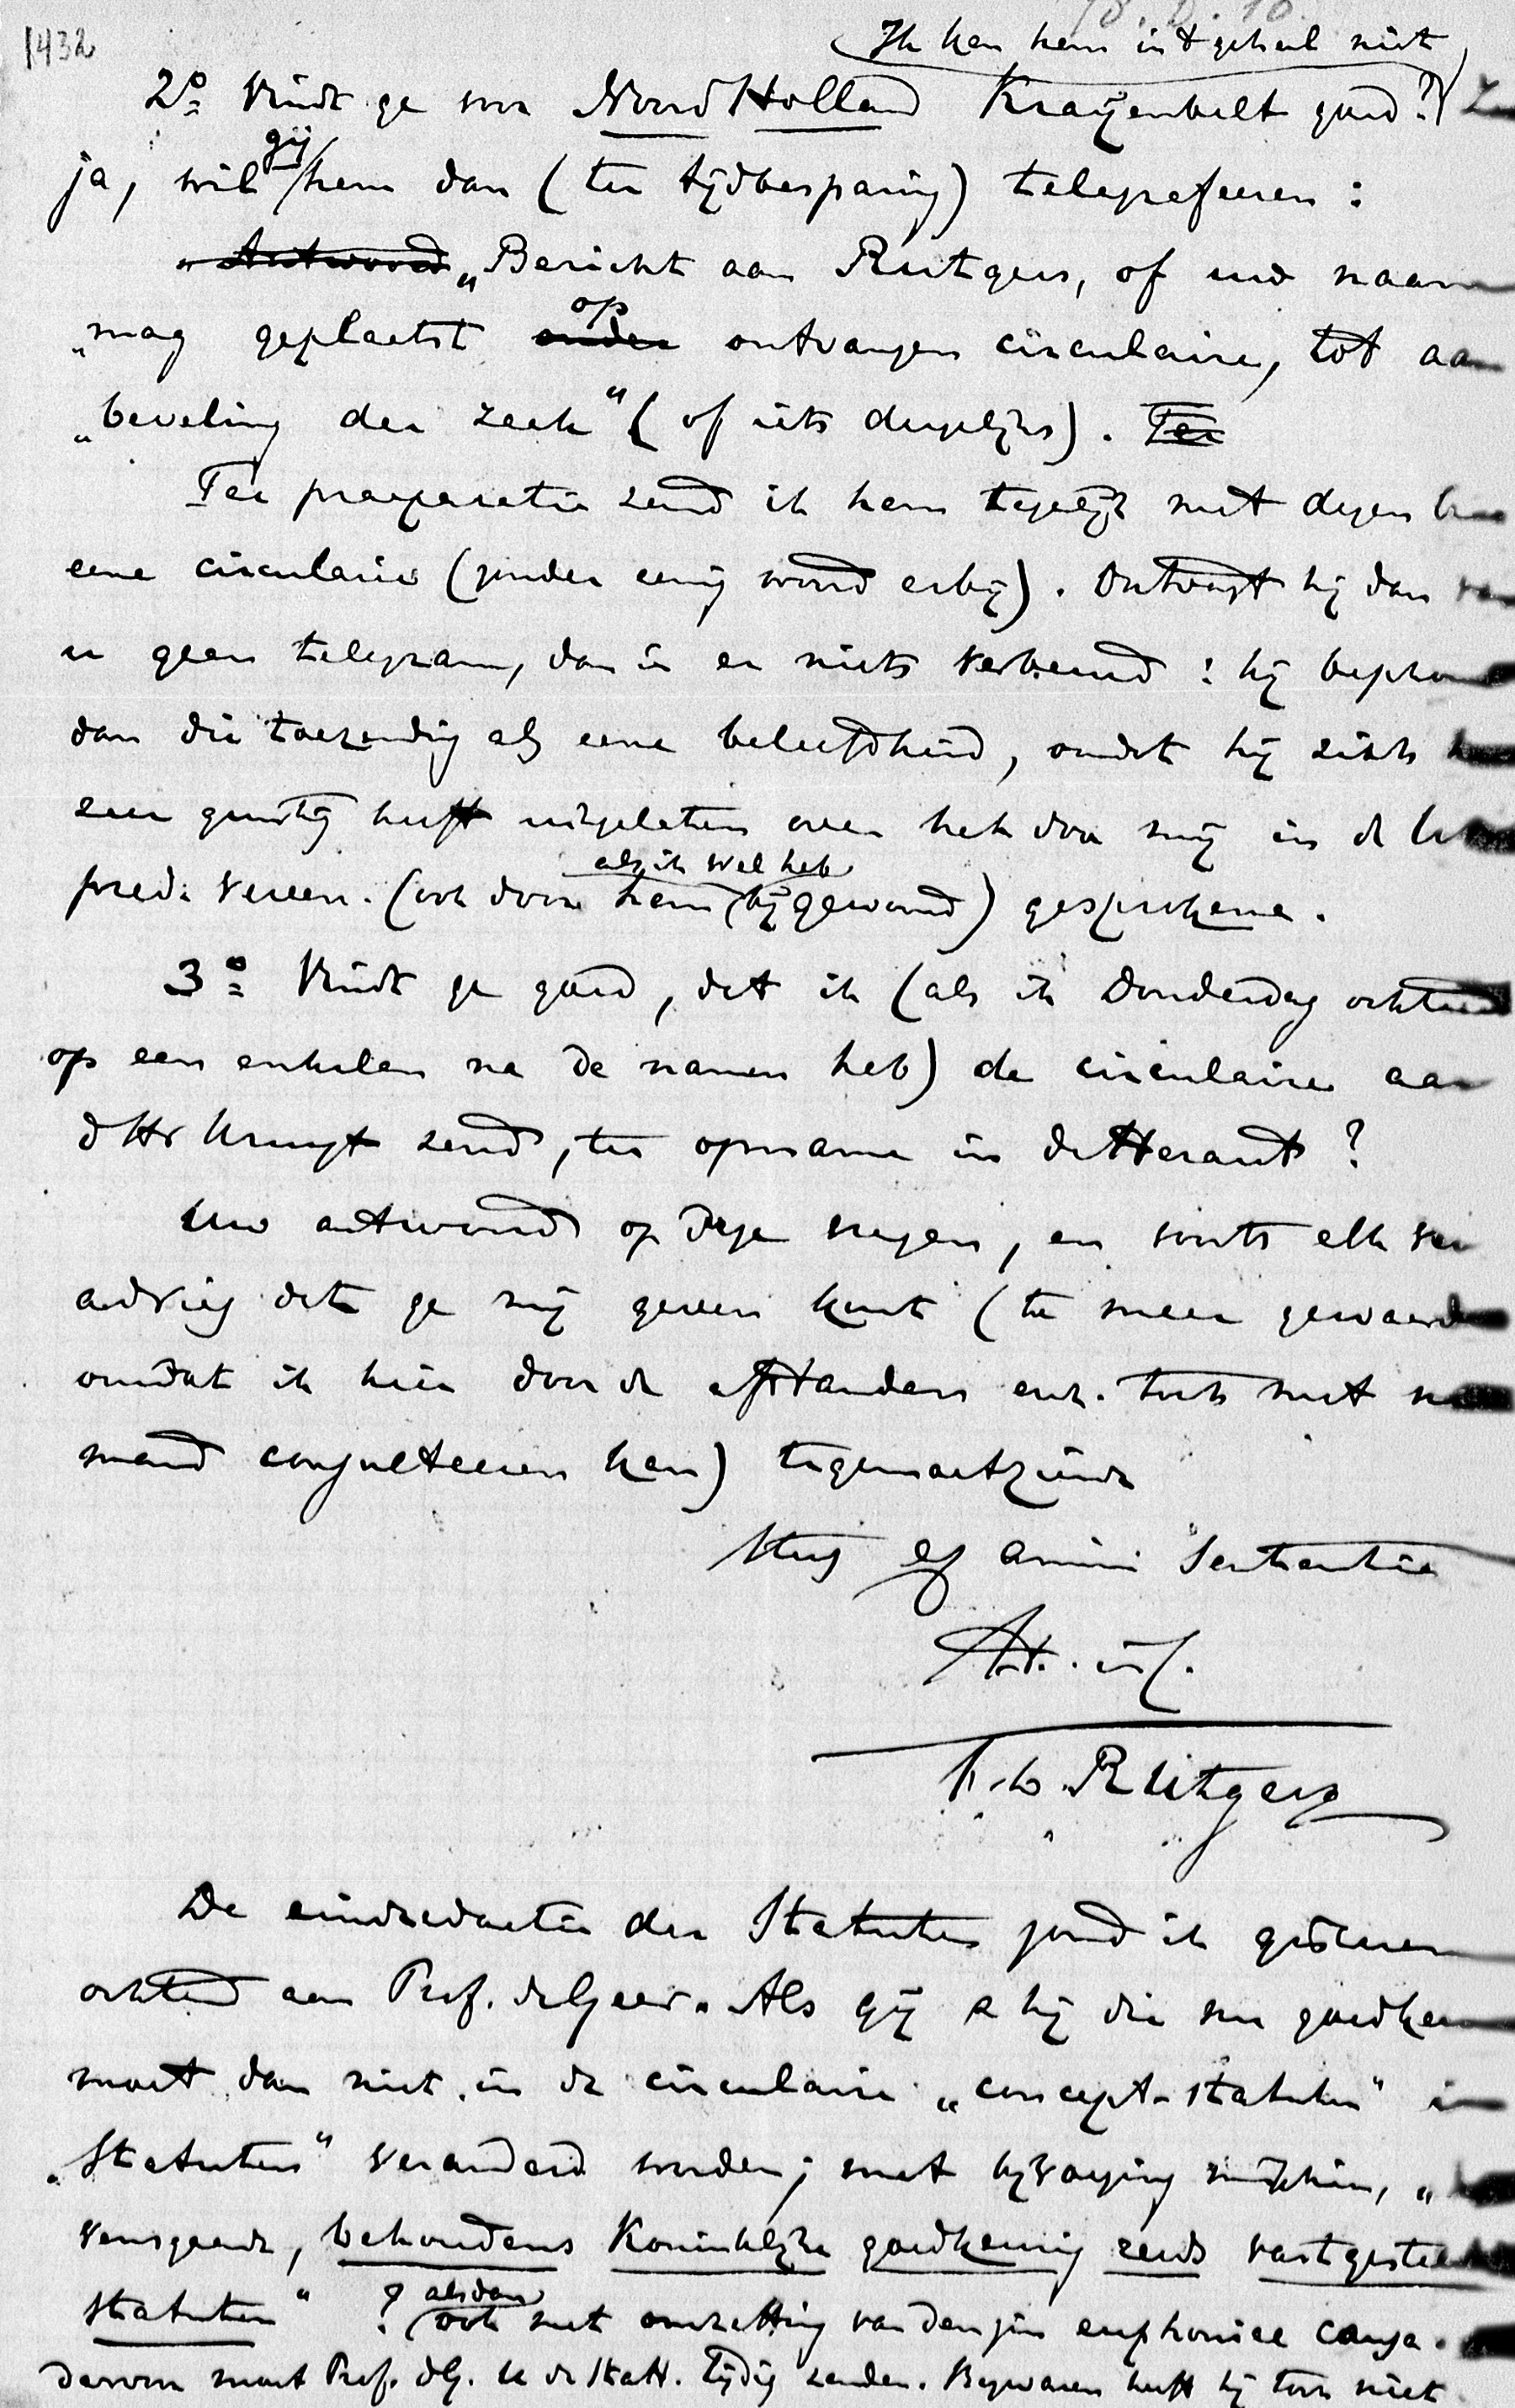 1432
(Ik ken hem in 't geheel niet)
2º Vindt ge voor Noord Holland Kraijenbelt goed?
ja, wilt gij hem dan (ter tijdbesparing) telegrafeeren:
„Antwoord „Bericht aan Rutgers, of uw naam
„mag geplaatst onder op ontvangen circulaire, tot aan
„beveling der zaak" (of iets dergelijks). Ter
Ter praeparatie zend ik hem tegelijk met dezen
eene circulaire (zonder eenig woord erbij). Ontvangt hij dan van
u geen telegram, dan is er niets verbeurd: hij
dan die toezending als eene beleefdheid, omdat hij zich
zeer gunstig heeft uitgelaten over het door mij in de
pred. vereen. (ook door hem, als ik wel heb, bijgewoond) gesprokene.
3º Vindt ge goed, dat ik (als ik Donderdag ochtend
op een enkelen na de namen heb) de circulaire aan
d Hr Kruyt zend, ter opname in de Heraut?
Uw antwoord op deze vragen, en voorts elk
advies dat ge mij geven kunt (te meer gewaard
omdat ik hier door de afstanden enz. toch met
mand consulteeren kan) tegemoetziende
ex animi sententia
F. L. Rutgers
De eindredactie der Statuten zond ik gisteren
ochtend aan Prof. de Geer. Als gij & hij die nu goedkeu
moet dan niet in de circulaire „concept-statuten" in
„Statuten" veranderd worden; met bijvoeging misschien, „
vensgaande, behoudens Koninklijke goedkeuring reeds vastgestel
statuten" ? (alsdan ook met omzetting van den zin euphoniae causa.
Daarom moet Prof. d G. U de Statt. tijdig zenden. Bezwaren heeft hij toch niet